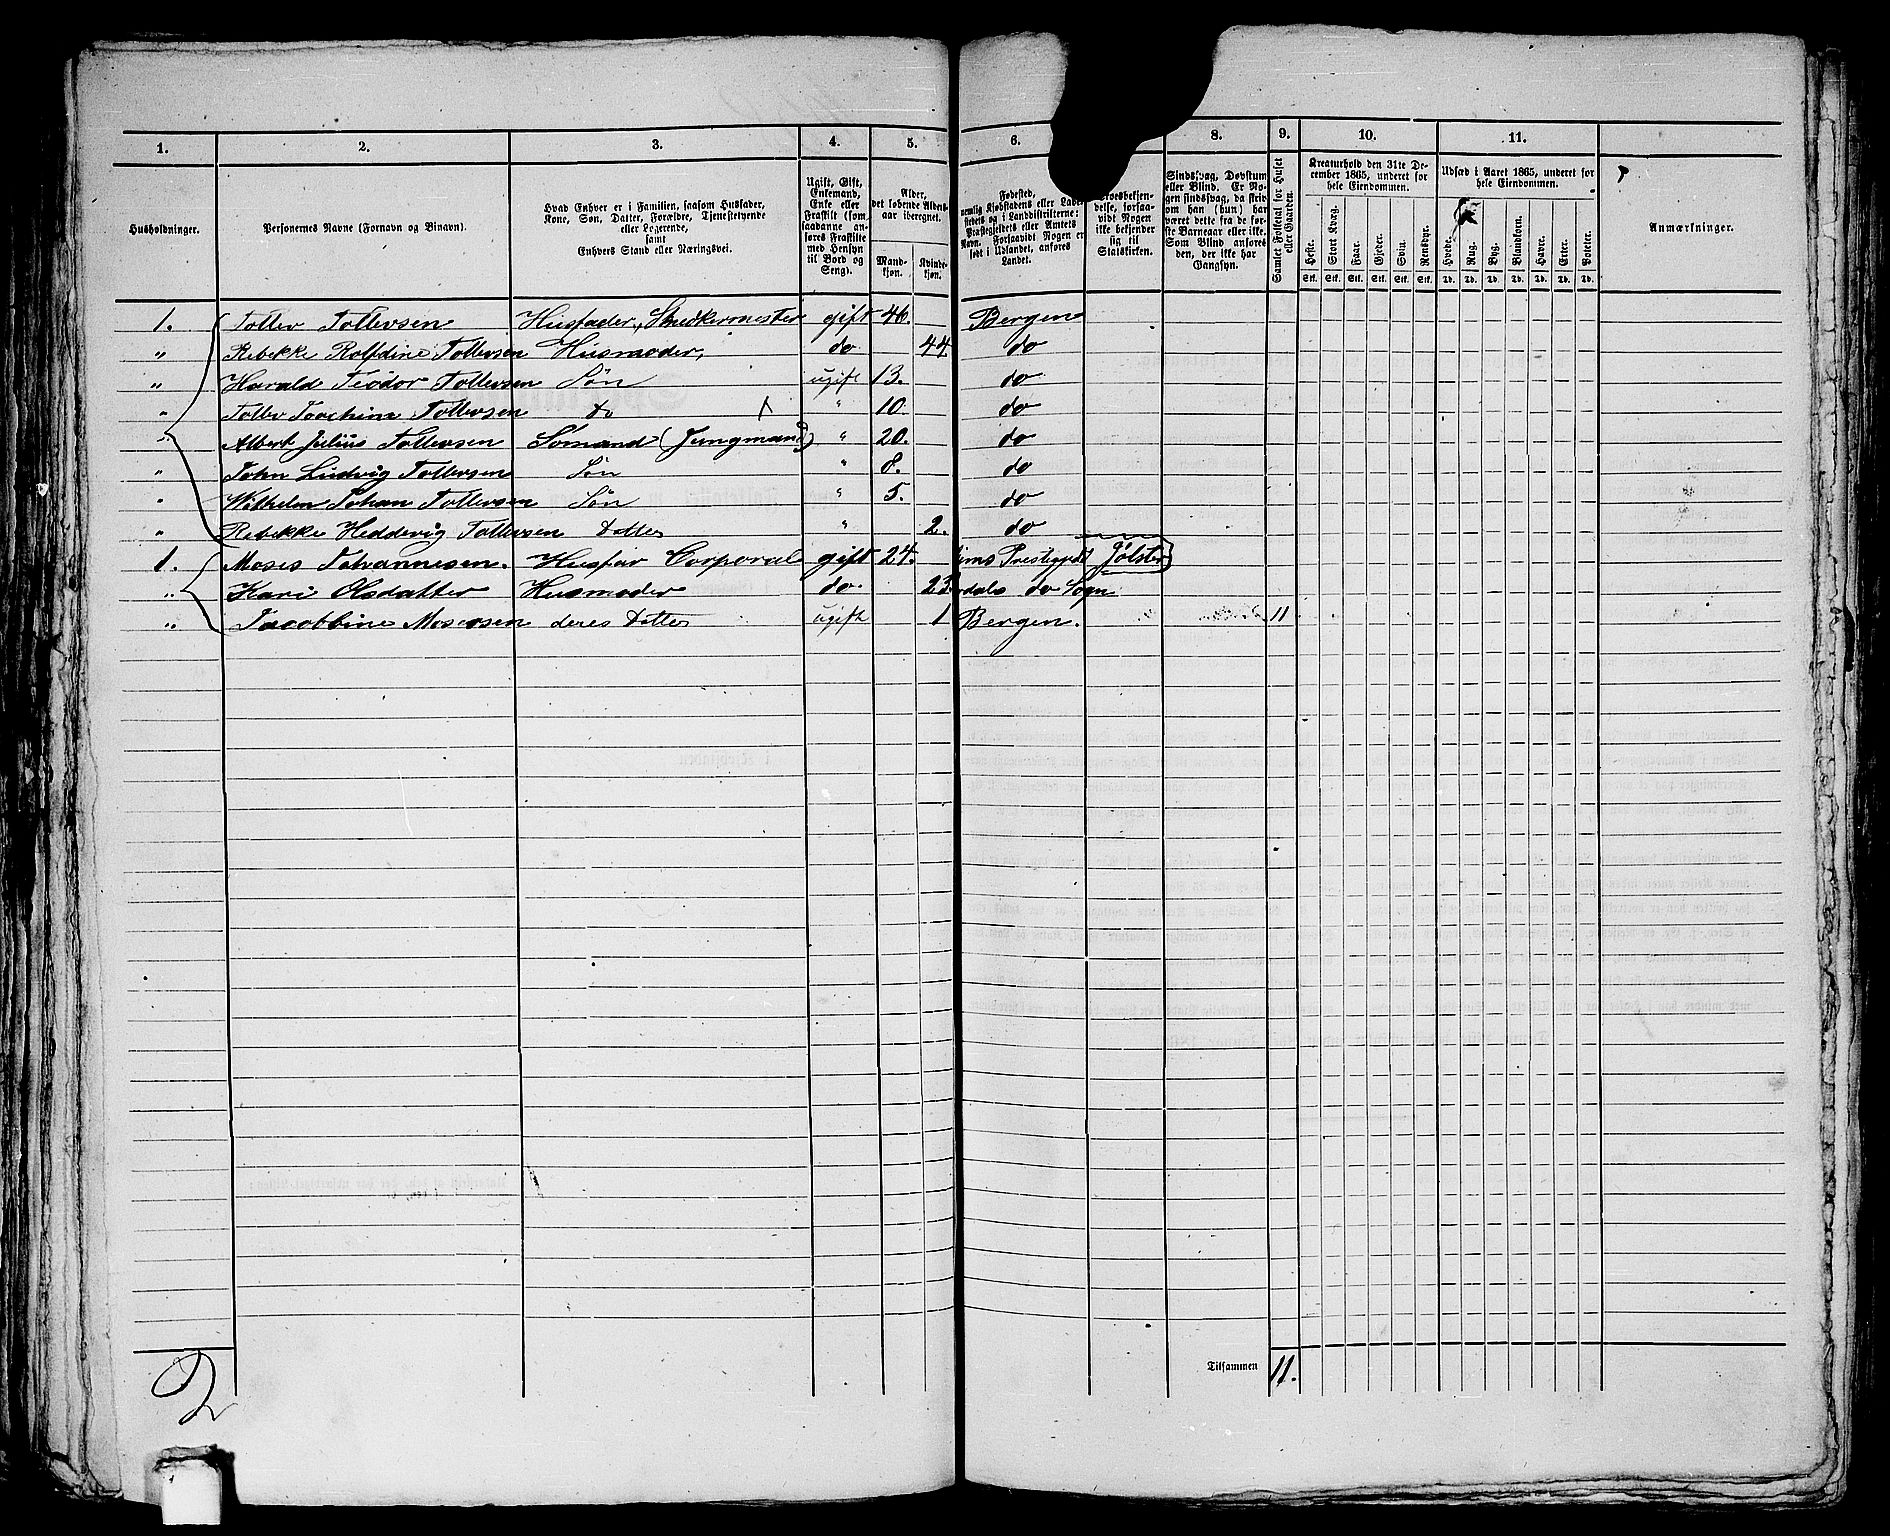 1. 2. 3. 4. 5. 6. 8. 9. 10. 11.
Husholdninger.
Personernes Navne (Fornavn og Binavn).
Hvad Enhver er i Familien, saasom Husfader,
Kone, Søn, Datter, Forældre, Tjenestetyende
eller Logerende,
samt
Enhvers Stand eller Næringsvei.
Ugift, Gift,
Enkemand,
Enke eller
Fraskilt (som
saadanne an-
føres Fraskilte
med Hensyn
til Bord og
Seng).
Alder,
det løbende Alders-
aar iberegnet.
Mand-
kjøn.
Kvinde-
kjøn.
Fødested,
nemlig Kjøbstadens eller Lade-
stedets og i Landdistrikterne:
Præstegjeldets eller Amtets
Navn. Forsaavidt Nogen er
født i Udlandet, anføres
Landet.
Troesbekjen-
delse, forsaa-
vidt Nogen
ikke bekjender
sig til
Statskirken.
Sindssvag, Døvstum
eller Blind. Er No-
gen sindssvag, da skriv
om han (hun) har
været dette fra de før-
ste Barneaar eller ikke.
Som Blind anføres
den, der ikke har
Gangsyn.
Samlet Folketal for Huset
eller Gaarden.
Kreaturhold den 31te De-
cember 1865, underet for
hele Eiendommen.
Heste. Stort Kvæg. Faar. Gjeder. Svin. Rensdyr.
Stk. Stk. Stk. Stk. Stk. Stk.
Udsæd i Aaret 1865, underet for
hele Eiendommen.
Hvede. Rug. Byg. Blandkorn. Havre. Erter. Poteter.
Td. Td. Td. Td. Td. Td. Td.
Anmærkninger.
1. Tollev Tollevsen Husfader, Snedkermester gift 46. Bergen
" Rebekke Rolfdine Tollevsen Husmoder, do 44 do
" Harald Teodor Tollevsen Søn ugift 13. do
" Tollev Joachim Tollevsen do X " 10. do
" Albert Julius Tollevsen Sømand (Jungmand) " 20. do
" John Ludvig Tollevsen Søn " 8. do
" Wilhelm Johan Tollevsen Søn " 5. do
" Rebekke Heddevig Tollevsen Datter " 2. do
1. Moses Johannesen. Husfar Corporal gift 24. Prestegjeldt Jølster
" Kari Olsdatter Husmoder do. 23 do Sogn
" Jacobbine Mosessen deres Datter ugift 1 Bergen. 11
Tilsammen 11.
2